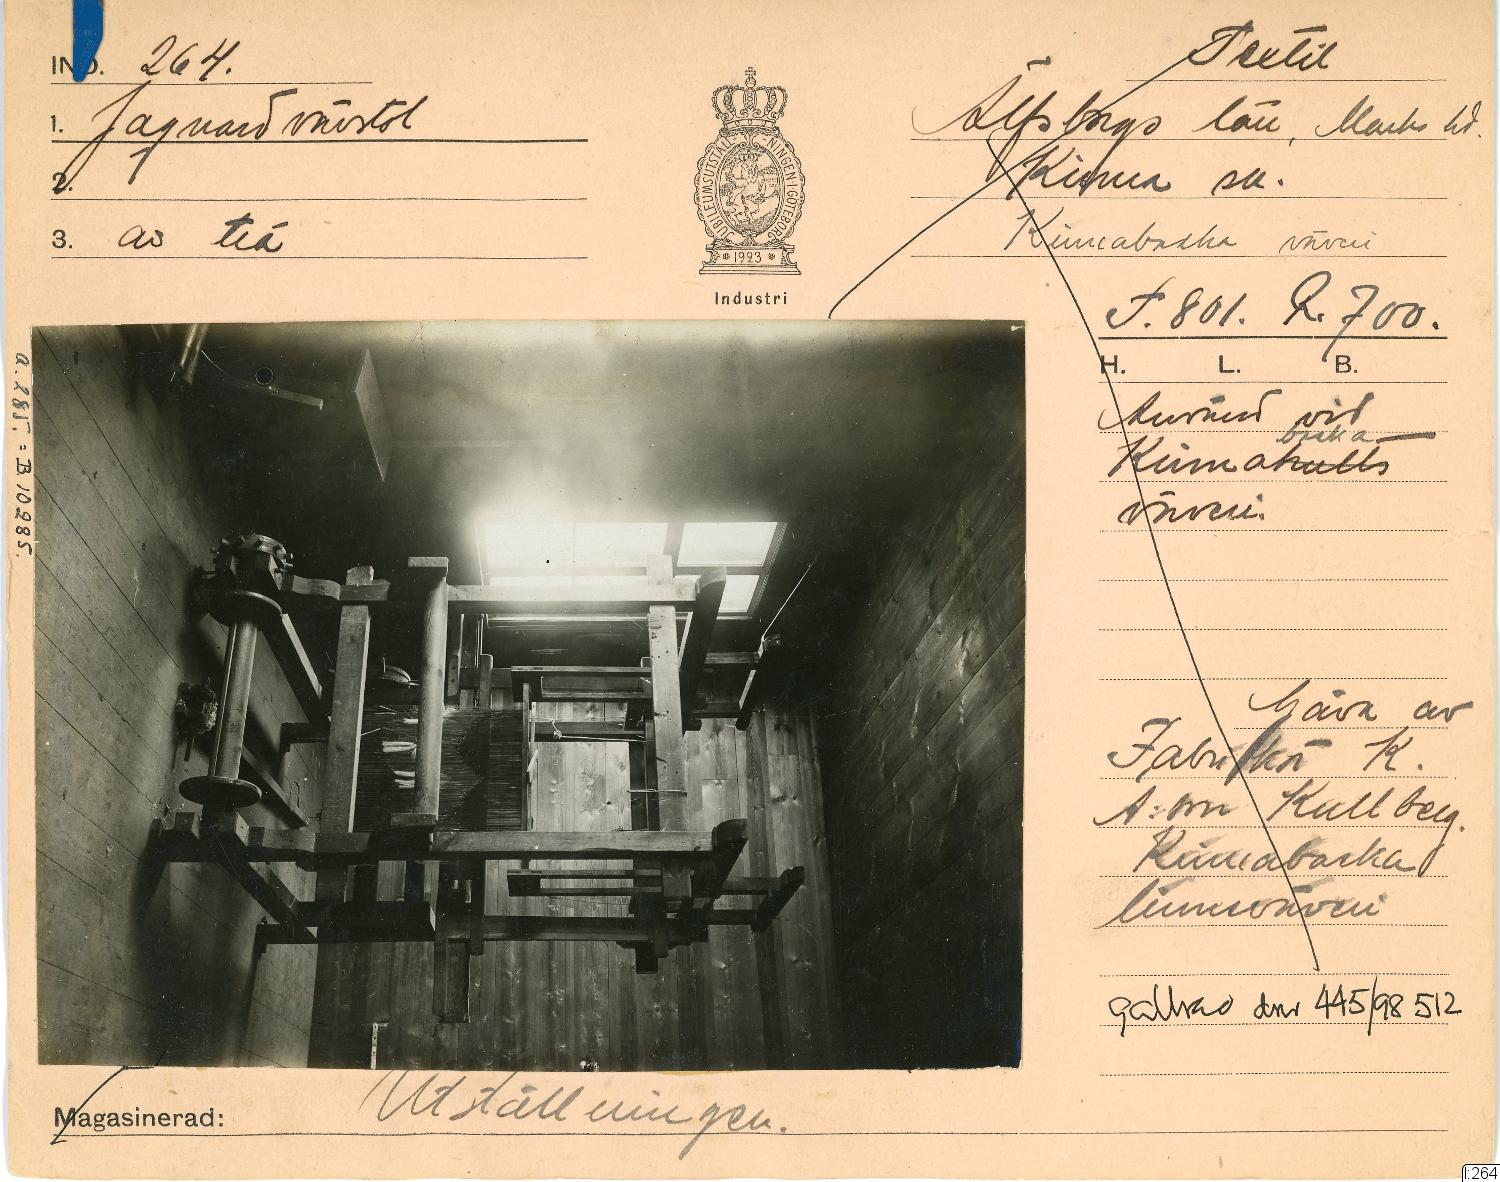 IND. 264.
1. Jaquard vävstol
2.
3. av trä
JUBILEUMSUTSTÄLLNINGEN I GÖTEBORG
1923
Industri
Textil
Älfsborgs län, Marks hd.
Kinna sn.
Kinnabaska väveri
F. 801. R. 700.
H. L. B.
Använd vid
baska
Kinnakulls
väveri.
Gåva av
Fabrikör K.
A:son Kullberg.
Kinnabaska
linneväveri
gallrad dnr 445/98 512
a. 285. = B. 10285.
Magasinerad: Utställningen.
I:264